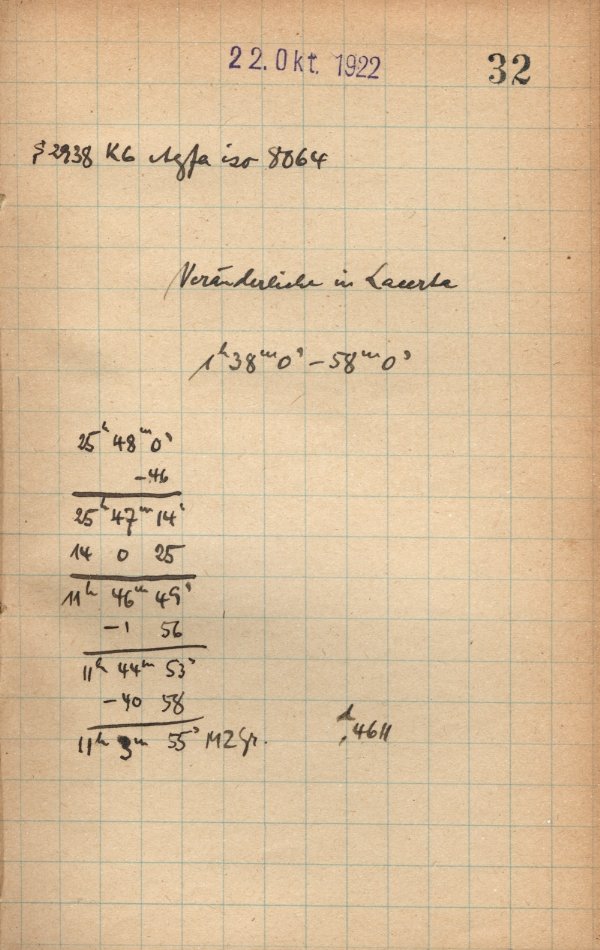 22. Okt. 1922
32
2938 K6 Agfa iso 8064
Veränderliche in Lacerta
1ʰ38ᵐ0ˢ – 58ᵐ0ˢ
25ʰ 48ᵐ 0ˢ
-46
25ʰ 47ᵐ 14ˢ
14 0 25
11ʰ 46ᵐ 49ˢ
-1 56
11ʰ 44ᵐ 53ˢ
-40 58
11ʰ 3ᵐ 55ˢ MZGr.
ᵈ,4611